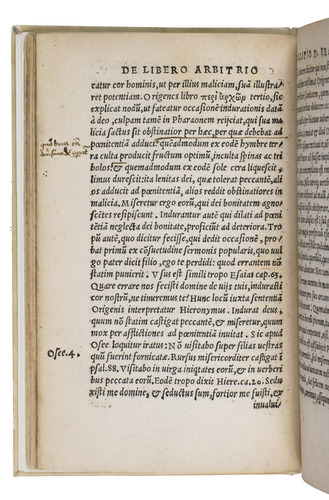 DE LIBERO ARBITRIO
catur cor hominis, ut per illius maliciam, suã illustra
ret potentiam. Origenes libro περὶ ἀρχῶν tertio, sic
explicat nodũ, ut fateatur occasionẽ indurationis datã
à deo, culpam tamẽ in Pharaonem reijciat, qui sua ma
licia factus sit obstinatior per hæc, per quæ debebat ad
pœnitentiã adduci: quẽadmodum ex eodẽ hymbre ter
ra culta producit fructum optimũ, inculta spinas ac tri
bolos: & quemadmodum ex eodẽ sole cera liquescit,
limus durescit: ita lenitas dei, quæ tolerat peccantẽ, ali
os adducit ad pœnitẽtiã, alios reddit obstinatiores in
malicia. Miseretur ergo eorũ, qui dei bonitatem agno
scẽtes resipiscunt. Indurantur autẽ qui dilati ad pœni
tẽtiam neglecta dei bonitate, proficiũt ad deteriora. Tro
pũ autẽ, quo dicitur fecisse, qui dedit occasionẽ, pro
bat primũ ex cõsuetudine sermonis popularis, quo uul
go pater dicit filio, ego te perdidi: quod errantem nõ
statim punierit. Vsus est simili tropo Esaias cap. 63.
Quare errare nos fecisti domine de uijs tuis, indurasti
cor nostrũ, ne timeremus te? Hunc locũ iuxta sententiã
Origenis interpretatur Hieronymus. Indurat deus,
quum nõ statim castigat peccantẽ, & miseretur, quum
mox per afflictiones ad pœnitentiam inuitat. Sic apud
Osee. 4.
Osee loquitur iratus: Nõ uisitabo super filias uestras
quũ fuerint fornicatæ. Rursus misericorditer castigat ĩ
psal. 88. Visitabo in uirga iniqtates eorũ, & in uerberi
bus peccata eorũ, Eodẽ tropo dixit Hiere. ca. 20. Sedu
xisti me domine, & seductus sum, fortior me fuisti, &
inualui